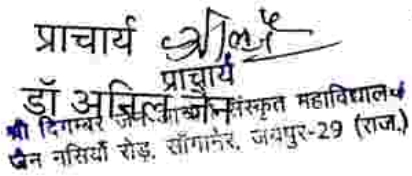 प्राचार्य
प्राचार्य
डॉ अनिल जैन
श्री दिगम्बर जैन संस्कृत महाविद्यालय
जैन नसियाँ रोड़, साँगानेर, जयपुर-29 (राज.)